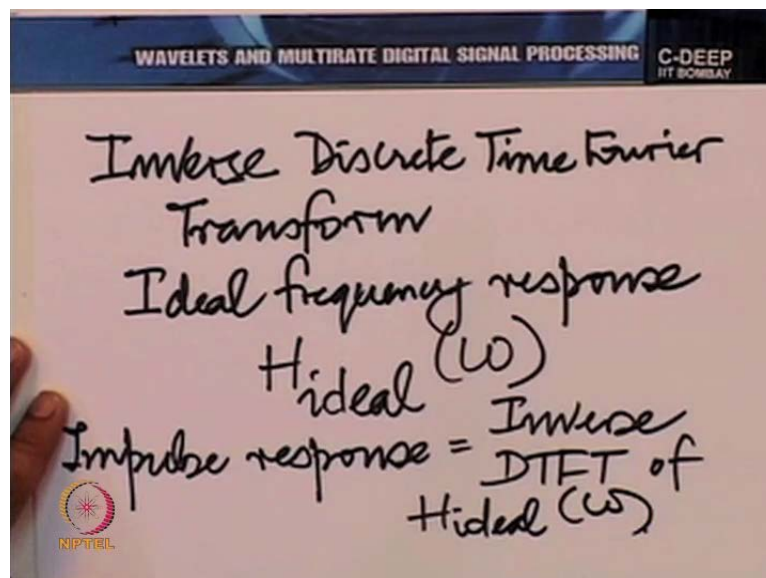 WAVELETS AND MULTIRATE DIGITAL SIGNAL PROCESSING
C-DEEP
IIT BOMBAY
Inverse Discrete Time Fourier
Transform
Ideal frequency response
Hideal (ω)
Impulse response = Inverse
DTFT of
Hideal (ω)
NPTEL